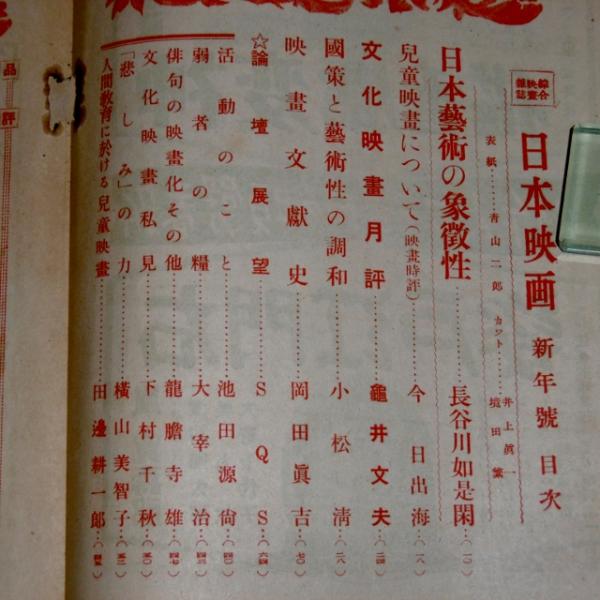 綜合映畫雜誌
日本映画 新年號 目次
表紙………青山二郎 カット………井上眞一 境田繁
日本藝術の象徵性………長谷川如是閑…(一〇)
兒童映畫について(映畫時評)………今日出海…(一八)
文化映畫月評………龜井文夫…(二四)
國策と藝術性の調和………小松淸…(二八)
映畫文獻史………岡田眞吉…(七〇)
☆論壇展望………SQS…(六四)
活動のこと………池田源尙…(四〇)
弱者の糧………太宰治…(四三)
俳句の映畫化その他………龍膽寺雄…(四七)
文化映畫私見………下村千秋…(五〇)
「悲しみ」の力………橫山美智子…(五三)
人間敎育に於ける兒童映畫………田邊耕一郎
品
評